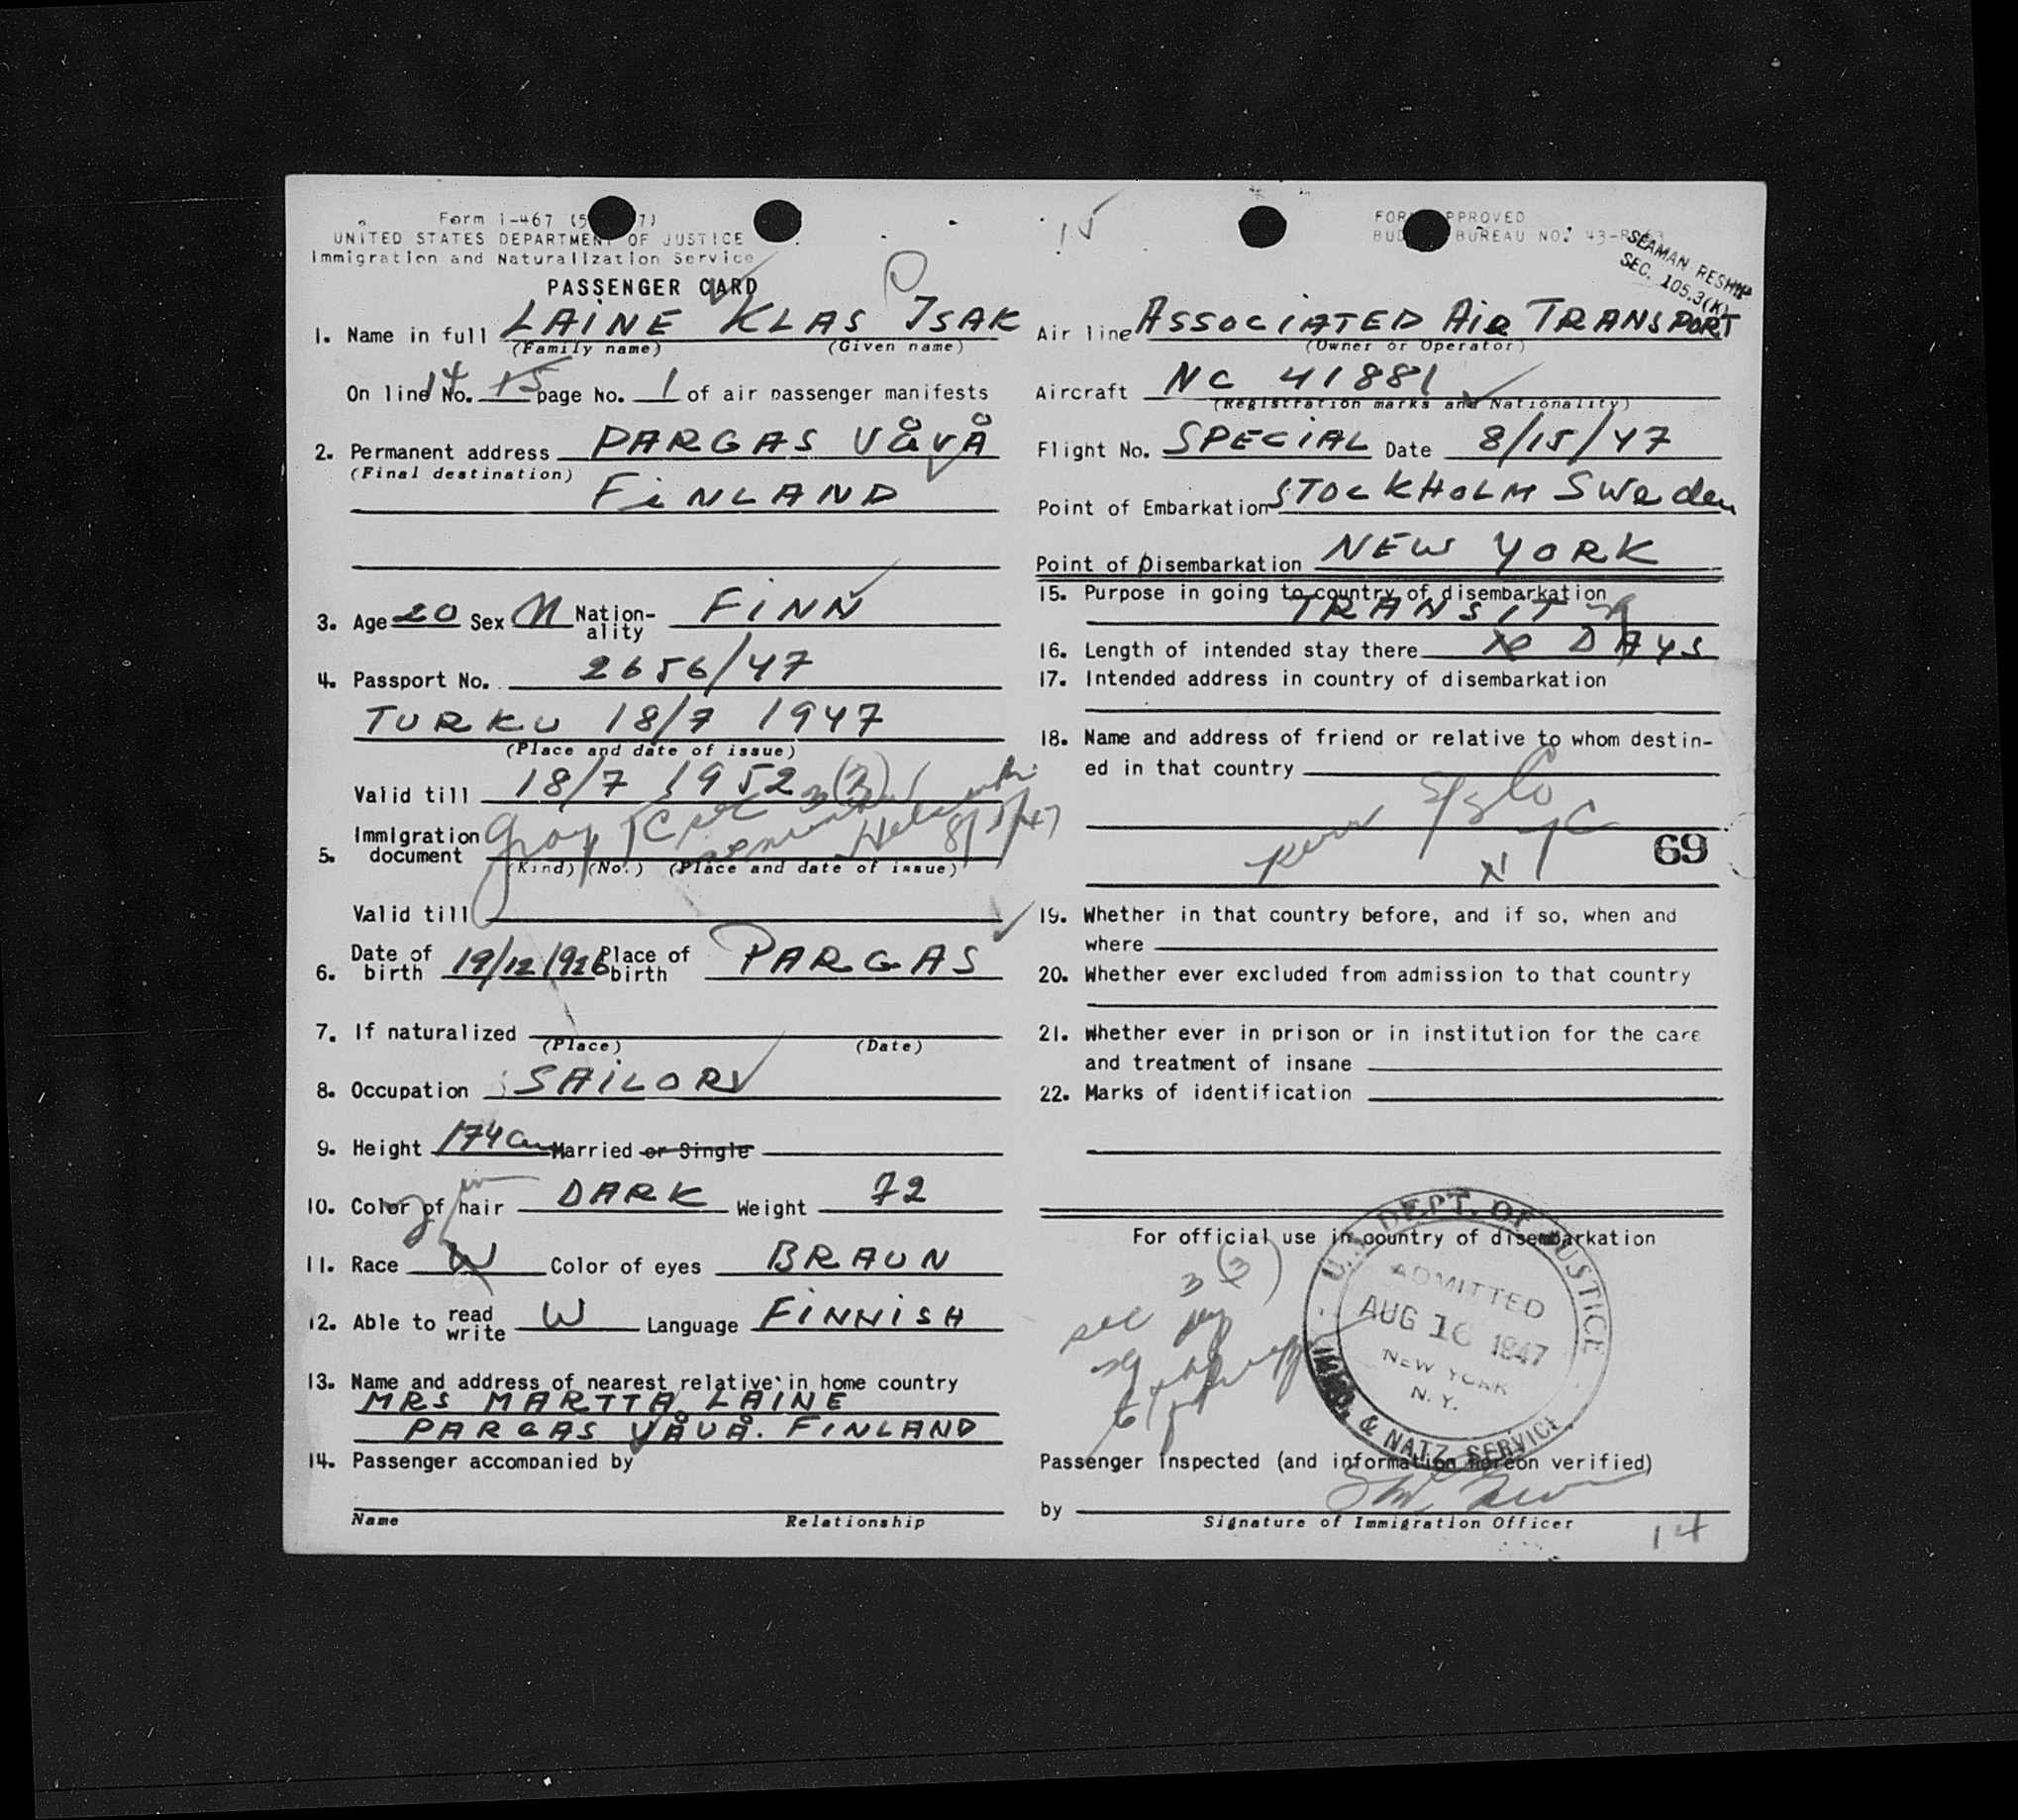 Form I-467 (5 7)
UNITED STATES DEPARTMENT OF JUSTICE
Immigration and Naturalization Service
PASSENGER CARD
15
FORM APPROVED
BUDGET BUREAU NO. 43-R
SEAMAN RESHIP
SEC. 105.3(K)
1. Name in full LAINE KLAS ISAK
(Family name) (Given name)
On line No. 14 15 page No. 1 of air passenger manifests
2. Permanent address PARGAS VÅVÅ
(Final destination)
FINLAND
3. Age 20 Sex M Nation-ality FINN
4. Passport No. 2656/47
TURKU 18/7 1947
(Place and date of issue)
Valid till 18/7 1952
5. Immigration document TC sec 3(3) Helsinki 8/5/47
(Kind) (No.) (Place and date of issue)
Valid till
6. Date of birth 19/12 1926 Place of birth PARGAS
7. If naturalized
(Place) (Date)
8. Occupation SAILOR
9. Height 174 cm Married or Single
10. Color of hair DARK Weight 72
11. Race W Color of eyes BRAUN
12. Able to read write W Language FINNISH
13. Name and address of nearest relative in home country
MRS MARTTA LAINE
PARGAS VÅVÅ. FINLAND
14. Passenger accompanied by
Name Relationship
Air line ASSOCIATED AIR TRANSPORT
(Owner or Operator)
Aircraft NC 41881
(Registration marks and Nationality)
Flight No. SPECIAL Date 8/15/47
Point of Embarkation STOCKHOLM Sweden
Point of Disembarkation NEW YORK
15. Purpose in going to country of disembarkation
TRANSIT
16. Length of intended stay there DAYS
17. Intended address in country of disembarkation
18. Name and address of friend or relative to whom destin-
ed in that country
Kerr S/S Co
NYC
69
19. Whether in that country before, and if so, when and
where
20. Whether ever excluded from admission to that country
21. Whether ever in prison or in institution for the care
and treatment of insane
22. Marks of identification
For official use in country of disembarkation
sec 3(3)
U.S. DEPT. OF JUSTICE
ADMITTED
AUG 16 1947
NEW YORK
N.Y.
IMMG. & NATZ. SERVICE
Passenger inspected (and information hereon verified)
by
Signature of Immigration Officer
14